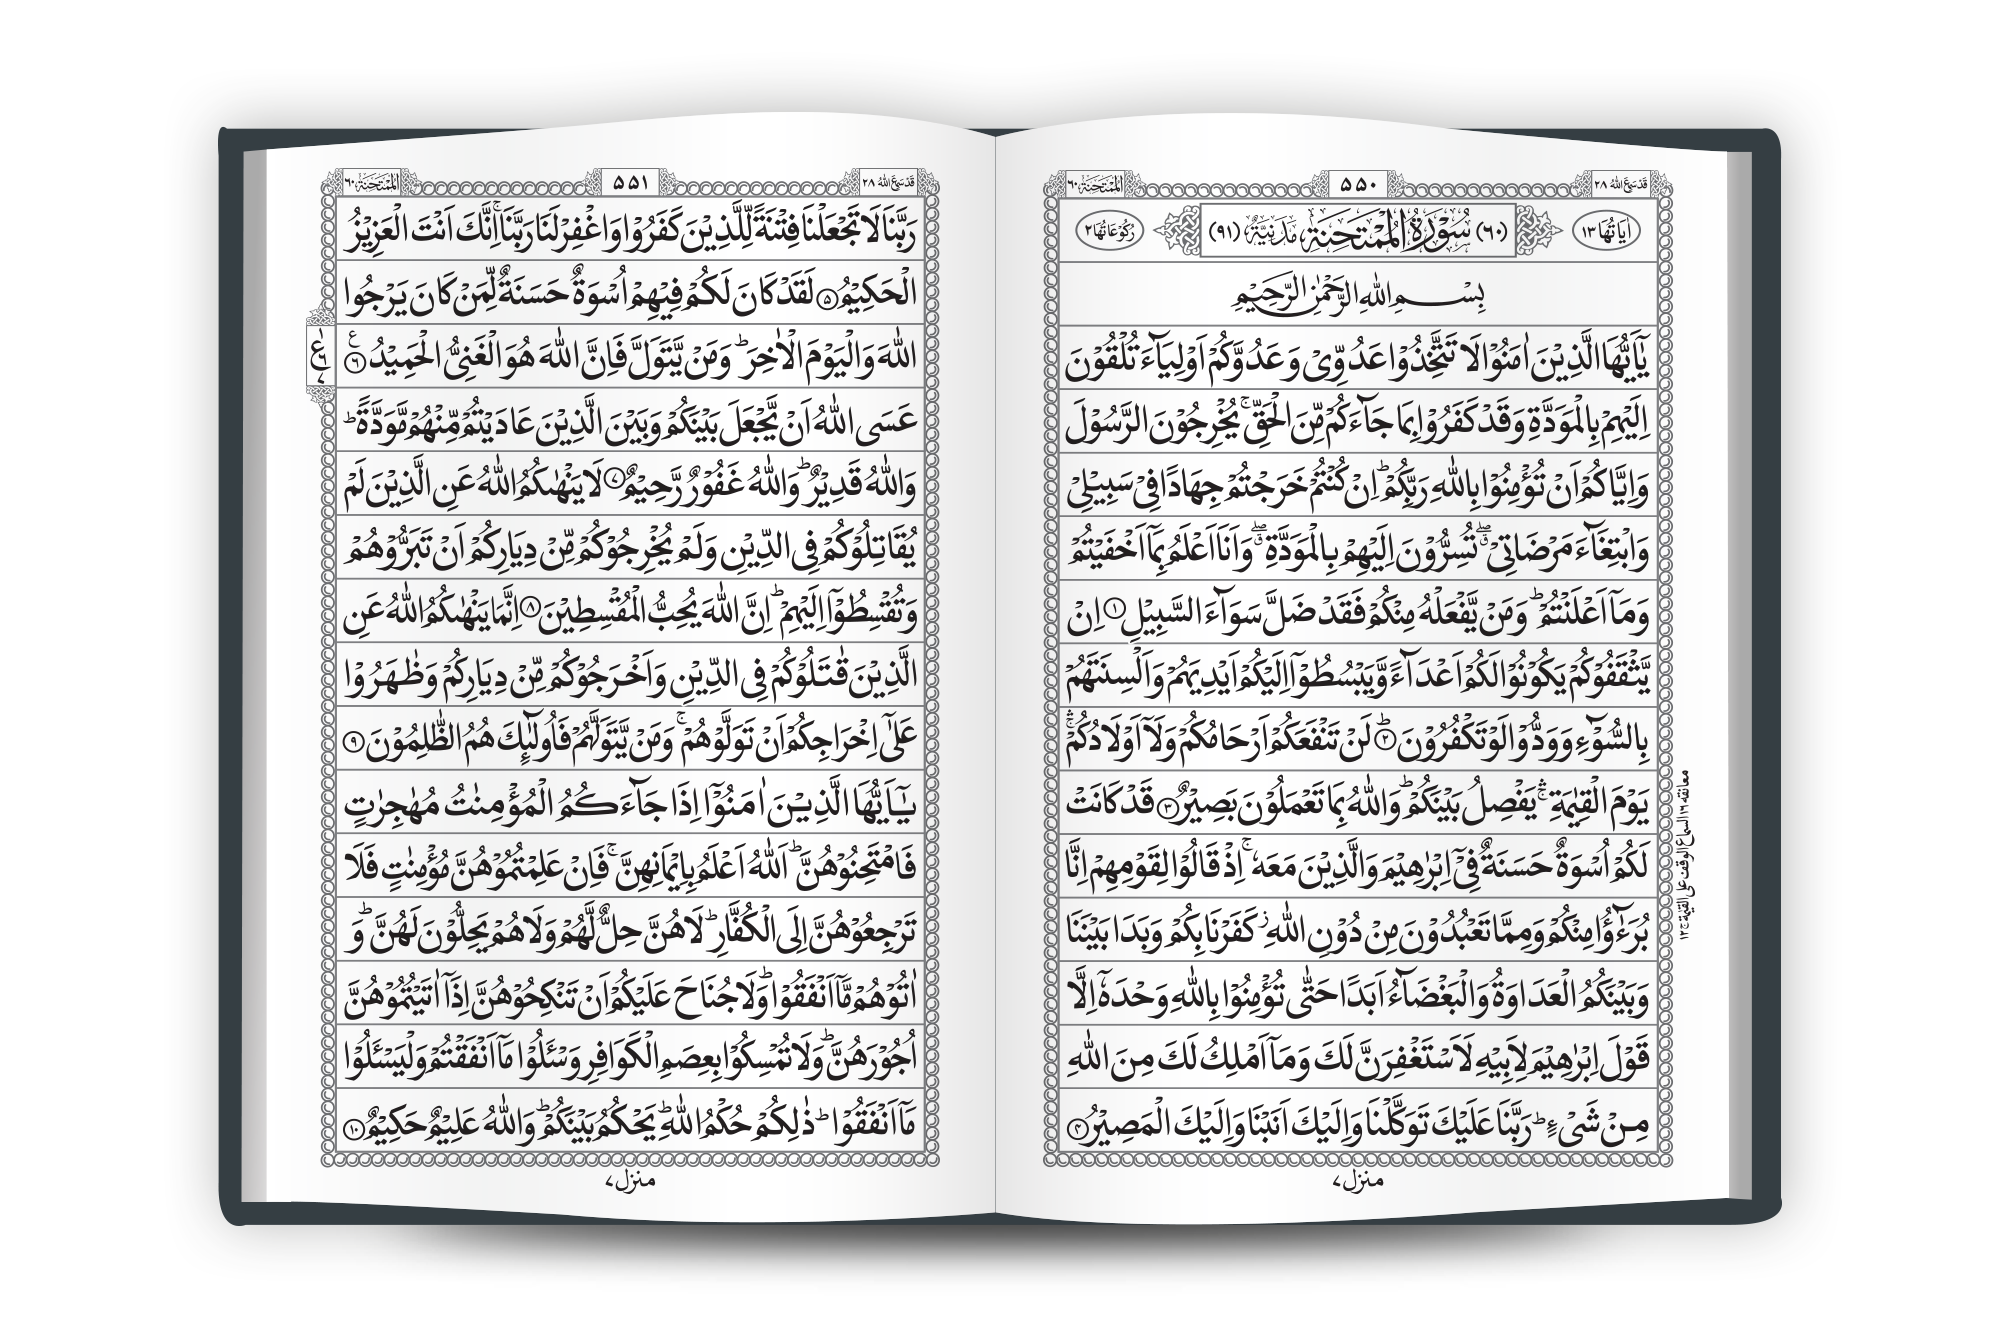 قَدْ سَمِعَ اللّٰهُ ٢٨
٥٥٠
اَلْمُمْتَحِنَة ٦٠
اٰيَاتُهَا ١٣
(٦٠) سُوْرَةُ الْمُمْتَحِنَةِ مَدَنِيَّةٌ (٩١)
رُكُوْعَاتُهَا ٢
بِسْمِ اللّٰهِ الرَّحْمٰنِ الرَّحِيْمِ
يٰٓاَيُّهَا الَّذِيْنَ اٰمَنُوْا لَا تَتَّخِذُوْا عَدُوِّىْ وَعَدُوَّكُمْ اَوْلِيَآءَ تُلْقُوْنَ
اِلَيْهِمْ بِالْمَوَدَّةِ وَقَدْ كَفَرُوْا بِمَا جَآءَكُمْ مِّنَ الْحَقِّ ۚ يُخْرِجُوْنَ الرَّسُوْلَ
وَاِيَّاكُمْ اَنْ تُؤْمِنُوْا بِاللّٰهِ رَبِّكُمْ ؕ اِنْ كُنْتُمْ خَرَجْتُمْ جِهَادًا فِىْ سَبِيْلِىْ
وَابْتِغَآءَ مَرْضَاتِىْ ۖۗ تُسِرُّوْنَ اِلَيْهِمْ بِالْمَوَدَّةِ ۖۗ وَاَنَا اَعْلَمُ بِمَآ اَخْفَيْتُمْ
وَمَآ اَعْلَنْتُمْ ؕ وَمَنْ يَّفْعَلْهُ مِنْكُمْ فَقَدْ ضَلَّ سَوَآءَ السَّبِيْلِ ۝۱ اِنْ
يَّثْقَفُوْكُمْ يَكُوْنُوْا لَكُمْ اَعْدَآءً وَّيَبْسُطُوْٓا اِلَيْكُمْ اَيْدِيَهُمْ وَاَلْسِنَتَهُمْ
بِالسُّوْٓءِ وَوَدُّوْا لَوْ تَكْفُرُوْنَ ؕ۝۲ لَنْ تَنْفَعَكُمْ اَرْحَامُكُمْ وَلَآ اَوْلَادُكُمْ ۛۚ
يَوْمَ الْقِيٰمَةِ ۛۚ يَفْصِلُ بَيْنَكُمْ ؕ وَاللّٰهُ بِمَا تَعْمَلُوْنَ بَصِيْرٌ ۝۳ قَدْ كَانَتْ
لَكُمْ اُسْوَةٌ حَسَنَةٌ فِىْٓ اِبْرٰهِيْمَ وَالَّذِيْنَ مَعَهٗ ۚ اِذْ قَالُوْا لِقَوْمِهِمْ اِنَّا
بُرَءٰٓؤُا مِنْكُمْ وَمِمَّا تَعْبُدُوْنَ مِنْ دُوْنِ اللّٰهِ ز كَفَرْنَا بِكُمْ وَبَدَا بَيْنَنَا
وَبَيْنَكُمُ الْعَدَاوَةُ وَالْبَغْضَآءُ اَبَدًا حَتّٰى تُؤْمِنُوْا بِاللّٰهِ وَحْدَهٗٓ اِلَّا
قَوْلَ اِبْرٰهِيْمَ لِاَبِيْهِ لَاَسْتَغْفِرَنَّ لَكَ وَمَآ اَمْلِكُ لَكَ مِنَ اللّٰهِ
مِنْ شَىْءٍ ؕ رَبَّنَا عَلَيْكَ تَوَكَّلْنَا وَاِلَيْكَ اَنَبْنَا وَاِلَيْكَ الْمَصِيْرُ ۝۴
منزل ٧
قَدْ سَمِعَ اللّٰهُ ٢٨
٥٥١
اَلْمُمْتَحِنَة ٦٠
رَبَّنَا لَا تَجْعَلْنَا فِتْنَةً لِّلَّذِيْنَ كَفَرُوْا وَاغْفِرْ لَنَا رَبَّنَا ۚ اِنَّكَ اَنْتَ الْعَزِيْزُ
الْحَكِيْمُ ۝۵ لَقَدْ كَانَ لَكُمْ فِيْهِمْ اُسْوَةٌ حَسَنَةٌ لِّمَنْ كَانَ يَرْجُوا
اللّٰهَ وَالْيَوْمَ الْاٰخِرَ ؕ وَمَنْ يَّتَوَلَّ فَاِنَّ اللّٰهَ هُوَ الْغَنِىُّ الْحَمِيْدُ ۝۶
عَسَى اللّٰهُ اَنْ يَّجْعَلَ بَيْنَكُمْ وَبَيْنَ الَّذِيْنَ عَادَيْتُمْ مِّنْهُمْ مَّوَدَّةً ؕ
وَاللّٰهُ قَدِيْرٌ ؕ وَاللّٰهُ غَفُوْرٌ رَّحِيْمٌ ۝۷ لَا يَنْهٰىكُمُ اللّٰهُ عَنِ الَّذِيْنَ لَمْ
يُقَاتِلُوْكُمْ فِى الدِّيْنِ وَلَمْ يُخْرِجُوْكُمْ مِّنْ دِيَارِكُمْ اَنْ تَبَرُّوْهُمْ
وَتُقْسِطُوْٓا اِلَيْهِمْ ؕ اِنَّ اللّٰهَ يُحِبُّ الْمُقْسِطِيْنَ ۝۸ اِنَّمَا يَنْهٰىكُمُ اللّٰهُ عَنِ
الَّذِيْنَ قٰتَلُوْكُمْ فِى الدِّيْنِ وَاَخْرَجُوْكُمْ مِّنْ دِيَارِكُمْ وَظٰهَرُوْا
عَلٰٓى اِخْرَاجِكُمْ اَنْ تَوَلَّوْهُمْ ۚ وَمَنْ يَّتَوَلَّهُمْ فَاُولٰٓئِكَ هُمُ الظّٰلِمُوْنَ ۝۹
يٰٓاَيُّهَا الَّذِيْنَ اٰمَنُوْٓا اِذَا جَآءَكُمُ الْمُؤْمِنٰتُ مُهٰجِرٰتٍ
فَامْتَحِنُوْهُنَّ ؕ اَللّٰهُ اَعْلَمُ بِاِيْمَانِهِنَّ ۚ فَاِنْ عَلِمْتُمُوْهُنَّ مُؤْمِنٰتٍ فَلَا
تَرْجِعُوْهُنَّ اِلَى الْكُفَّارِ ؕ لَا هُنَّ حِلٌّ لَّهُمْ وَلَا هُمْ يَحِلُّوْنَ لَهُنَّ ؕ وَ
اٰتُوْهُمْ مَّآ اَنْفَقُوْا ؕ وَلَا جُنَاحَ عَلَيْكُمْ اَنْ تَنْكِحُوْهُنَّ اِذَآ اٰتَيْتُمُوْهُنَّ
اُجُوْرَهُنَّ ؕ وَلَا تُمْسِكُوْا بِعِصَمِ الْكَوَافِرِ وَسْـَٔلُوْا مَآ اَنْفَقْتُمْ وَلْيَسْـَٔلُوْا
مَآ اَنْفَقُوْا ؕ ذٰلِكُمْ حُكْمُ اللّٰهِ ؕ يَحْكُمُ بَيْنَكُمْ ؕ وَاللّٰهُ عَلِيْمٌ حَكِيْمٌ ۝۱۰
منزل ٧